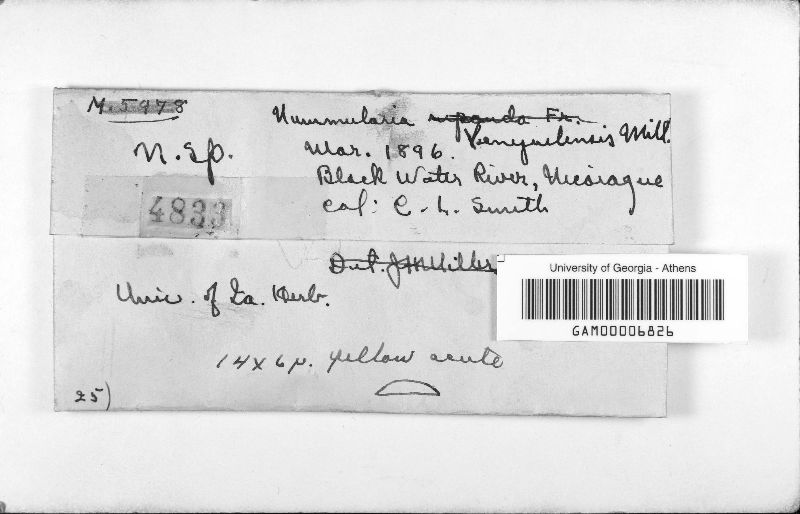 M. 5978
Nummularia repanda Fr.
Venezuelensis Mill.
N. Sp.
Mar. 1896.
Black Water River, Nicaragua
4833
col: C. L. Smith
Det. J H Miller
Univ. of Ia. Herb.
14 x 6 µ. yellow acute
25)
University of Georgia - Athens
GAM00006826